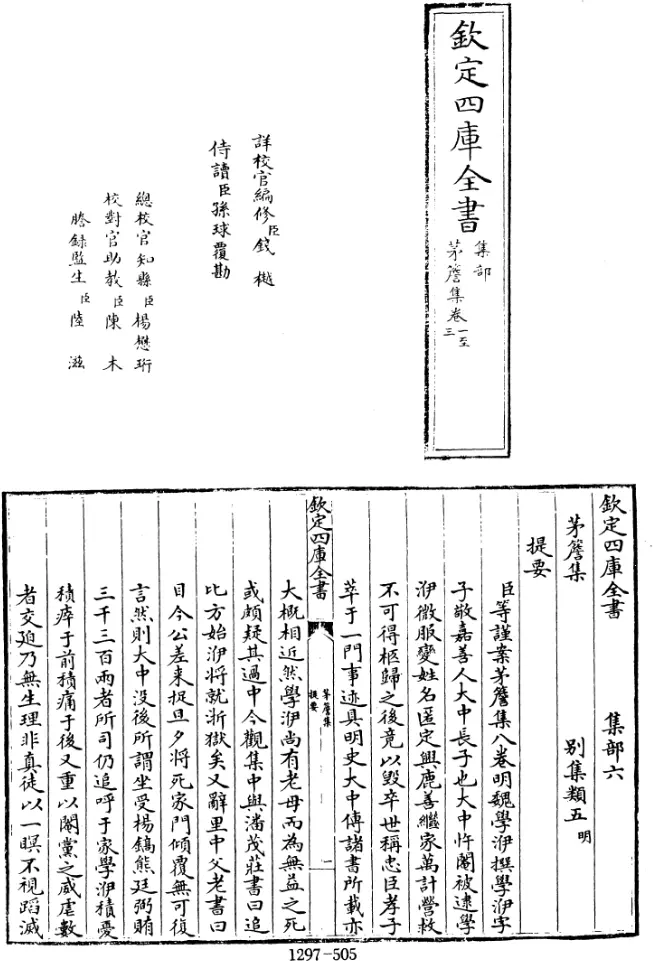 欽定四庫全書
集部
茅簷集卷一至三
詳校官編修臣錢樾
侍讀臣孫球覆勘
總校官知縣臣楊懋珩
校對官助教臣陳木
謄錄監生臣陸滋
欽定四庫全書 集部六
茅簷集 別集類五 明
提要
臣等謹案茅簷集八卷明魏學洢撰學洢字
子敬嘉善人大中長子也大中忤閹被逮學
洢微服變姓名匿定興鹿善繼家萬計營救
不可得柩歸之後竟以毀卒世稱忠臣孝子
萃于一門事迹具明史大中傳諸書所載亦
欽定四庫全書
茅簷集
提要
一
大概相近然學洢尚有老母而為無益之死
或頗疑其過中今觀集中與潘茂莊書曰追
比方始洢將就浙獄矣又辭里中父老書曰
目今公差來捉旦夕將死家門傾覆無可復
言然則大中没後所謂坐受楊鎬熊廷弼賄
三千三百兩者所司仍追呼于家學洢積憂
積瘁于前積痛于後又重以閹黨之威虐數
者交迫乃無生理非真徒以一瞑不視蹈滅
1297-505